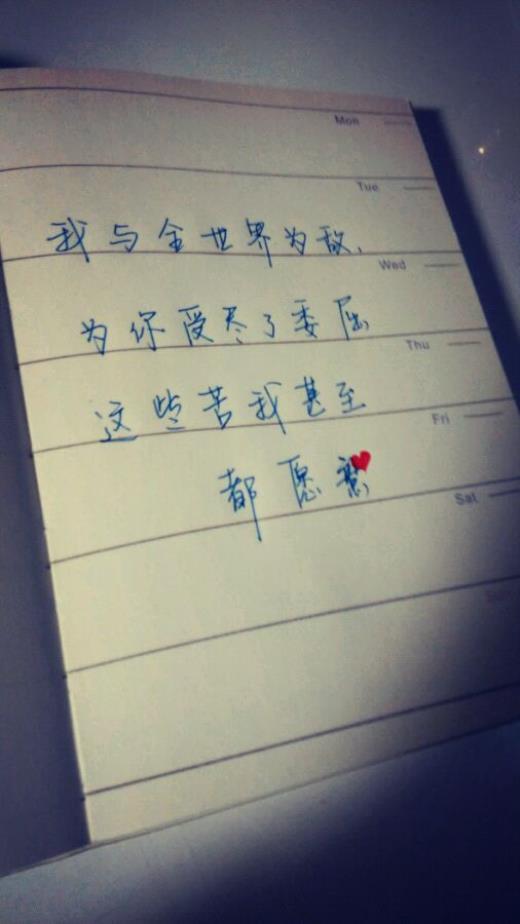 Mon
Tue
我与全世界为敌,
Wed
为你受尽了委屈
Thu
这些苦我甚至
Fri
都愿意
Sat
Sun